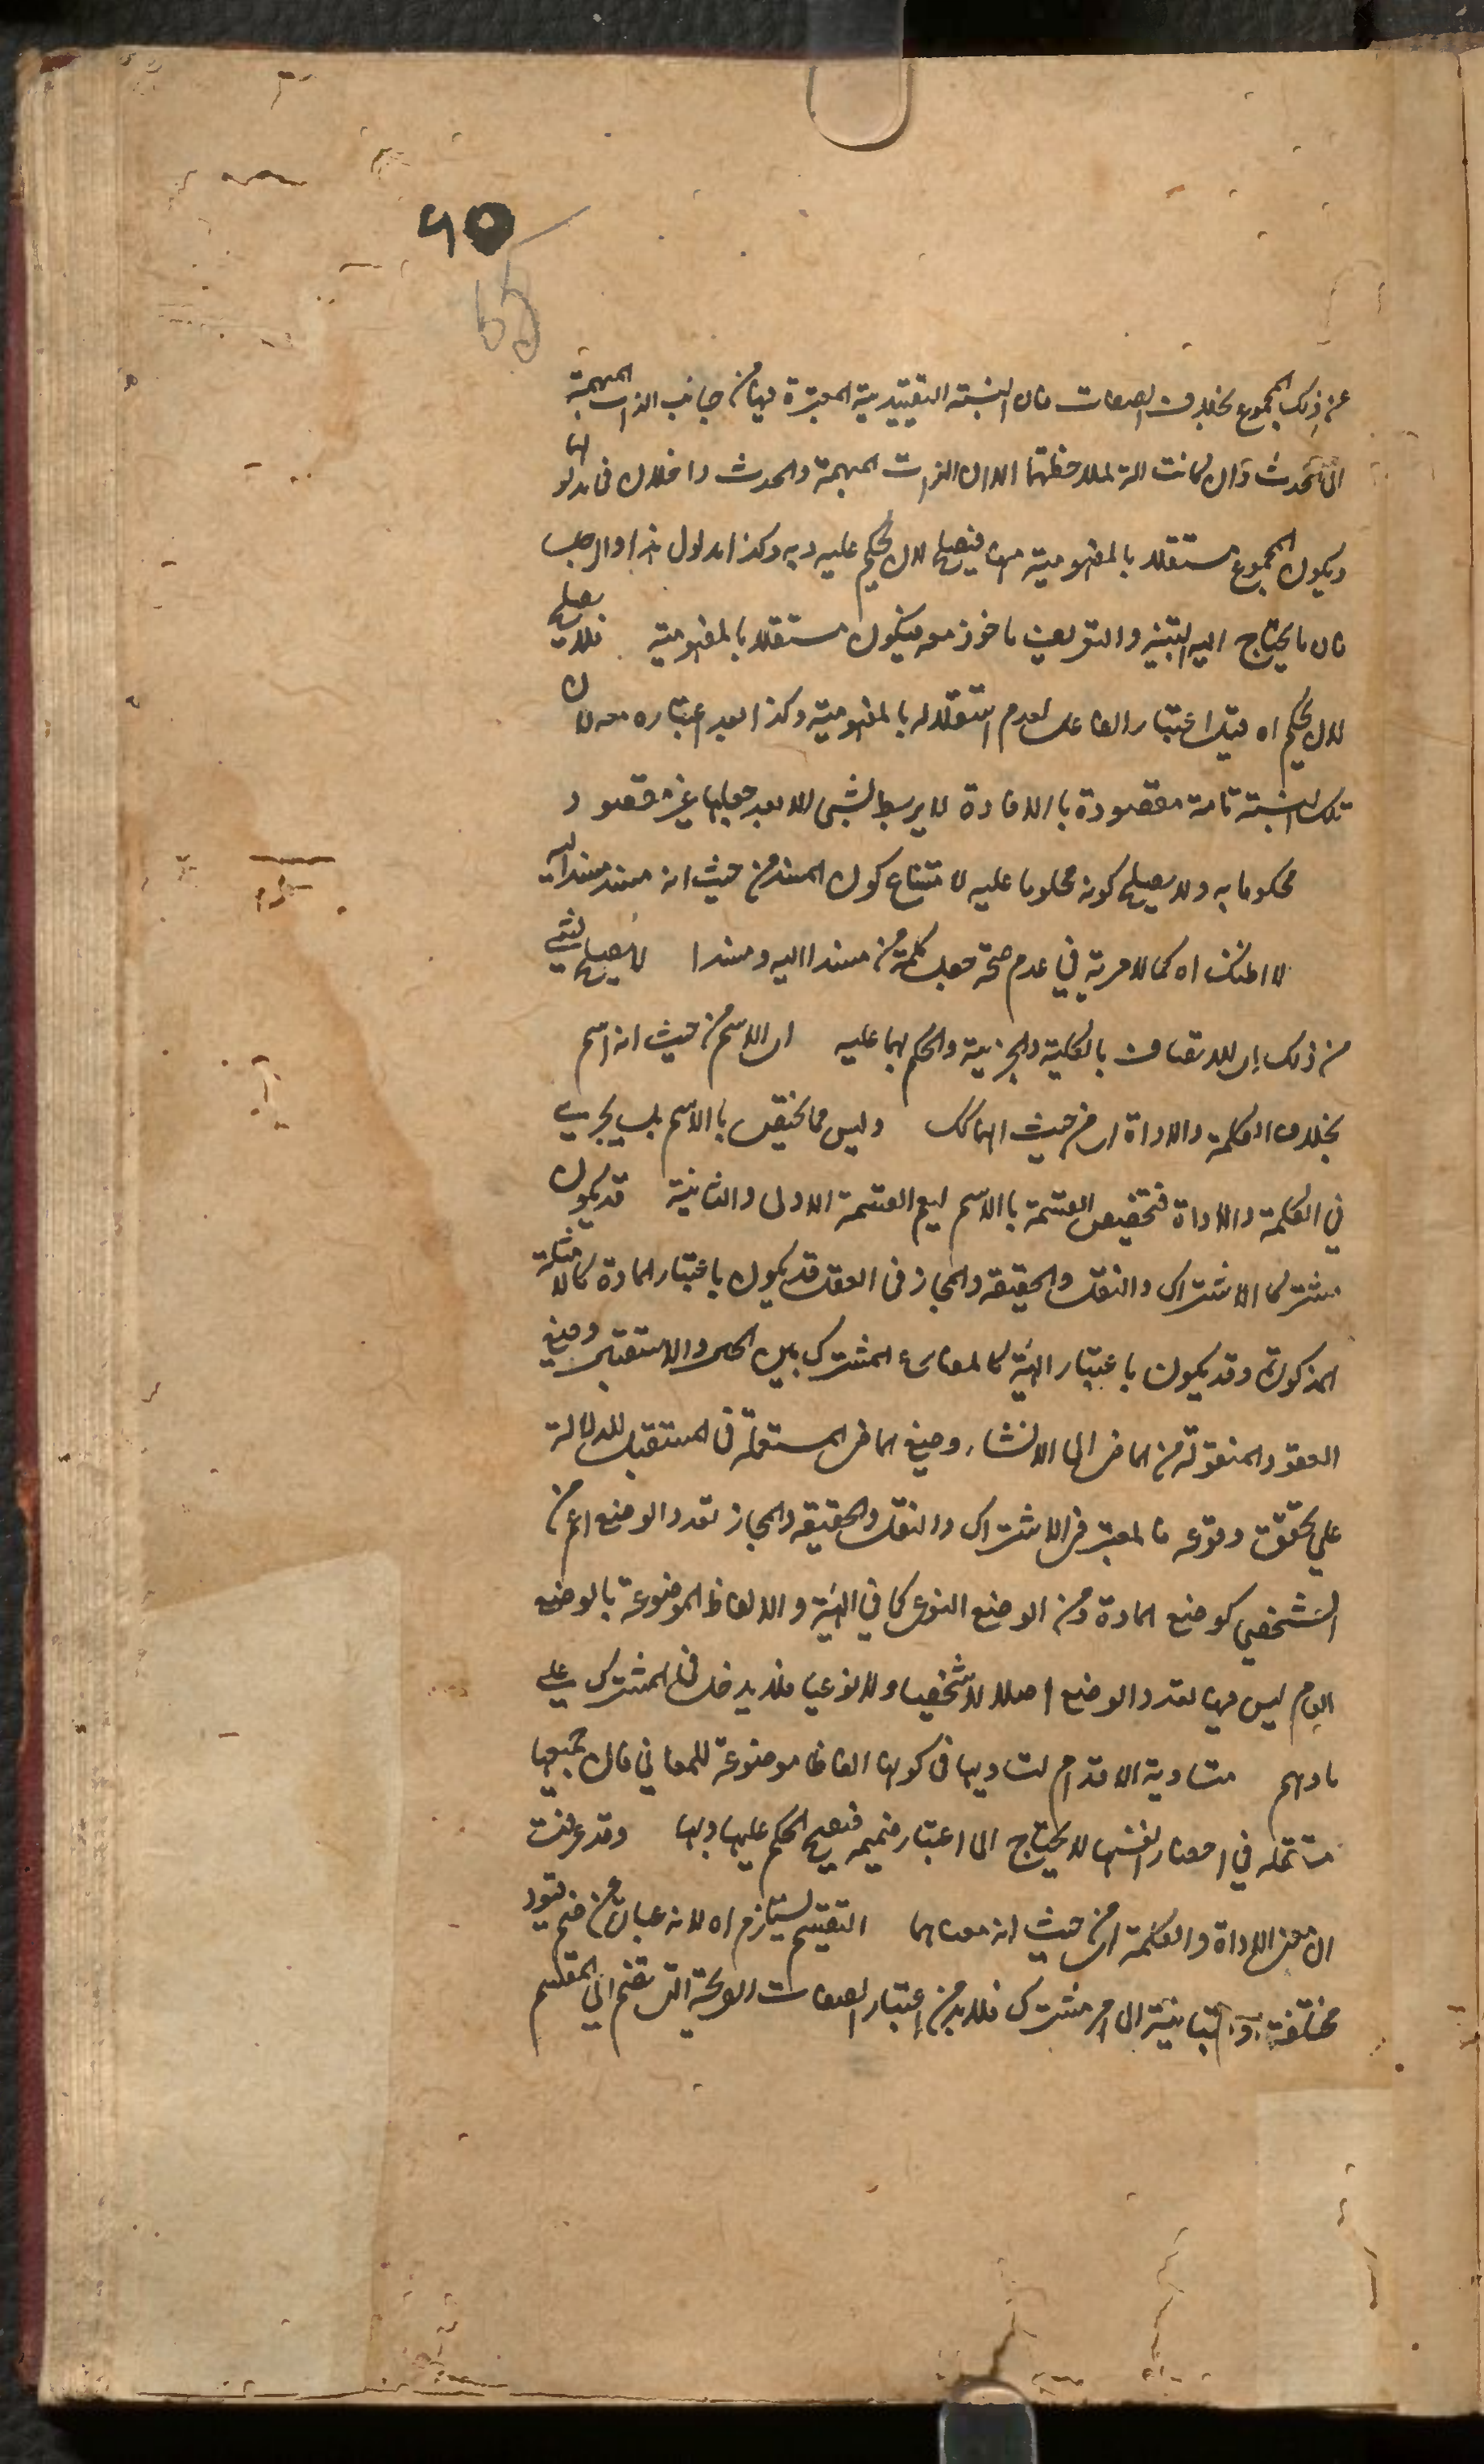 90
65
عن ذلك المجموع بخلاف الصفات فان النسبة التقييدية المعتبرة فيها من جانب الذات المبهمة
الى الحدث وان كانت الة لملاحظتهما الا ان الذات المبهمة والحدث داخلان فى مدلولها
ويكون المجموع مستقلا بالمفهومية منها فيصلح لان يحكم عليه وبه وكذا مدلول هذا والرجل
فان ما يحتاج اليه التنبيه والتعريف ماخوذ معه فيكون مستقلا بالمفهومية فلا يصلح
لان يحكم اه قبل اعتبار الفاعل لعدم استقلاله بالمفهومية وكذا بعد اعتباره معه لان
تلك النسبة تامة مقصودة بالافادة لا يرتبط بشئ الا بعد جعلها غير مقصود
محكوما به ولا يصلح كونه محكوما عليه لامتناع كون المسند من حيث انه مسند مسندا اليه
لا امكنك اه كما لا مرية في عدم صحة جعل كلمة من مسندا اليه ومسندا لا يصلح لشئ
من ذلك اى للاتصاف بالكلية والجزئية والحكم بهما عليه اى الاسم من حيث انه اسم
بخلاف الكلمة والاداة اى من حيث انهما كك وليس مما يختص بالاسم بل يجرى
في الكلمة والاداة فتخصيص القسمة بالاسم ليعم القسمة الاولى والثانية قد يكون
مشتركا الاشتراك والنقل والحقيقة والمجاز فى الفعل قد يكون باعتبار المادة كالامثلة
المذكورة وقد يكون باعتبار الهيئة كالمضارع المشترك بين الحال والاستقبال وصيغ
العقود المنقولة من الماضى الى الانشاء وصيغ الماضى المستعملة فى المستقبل للدلالة
على تحقق وقوعه فالمعتبر فى الاشتراك والنقل والحقيقة والمجاز تعدد الوضع اعم من
الشخصي كوضع المادة ومن الوضع النوعى كما في الهيئة والالفاظ الموضوعة بالوضع
العام ليس فيها تعدد الوضع اصلا لا شخصيا ولا نوعيا فلا يدخل فى المشترك على
ما وهم متساوية الاقدام لتساويها فى كونها الفاظا موضوعة للمعاني فان جميعها
مستعملة في احضار انفسها لا يحتاج الى اعتبار ضميمة فيصح الحكم عليها وبها وقد عرفت
ان معنى الاداة والكلمة اى من حيث انه معناهما التقسيم يستلزم اه لانه عبارة عن ضم قيود
مختلفة او متباينة الى امر مشترك فلا بد من اعتبار الصفات التى تنضم الى المقسم